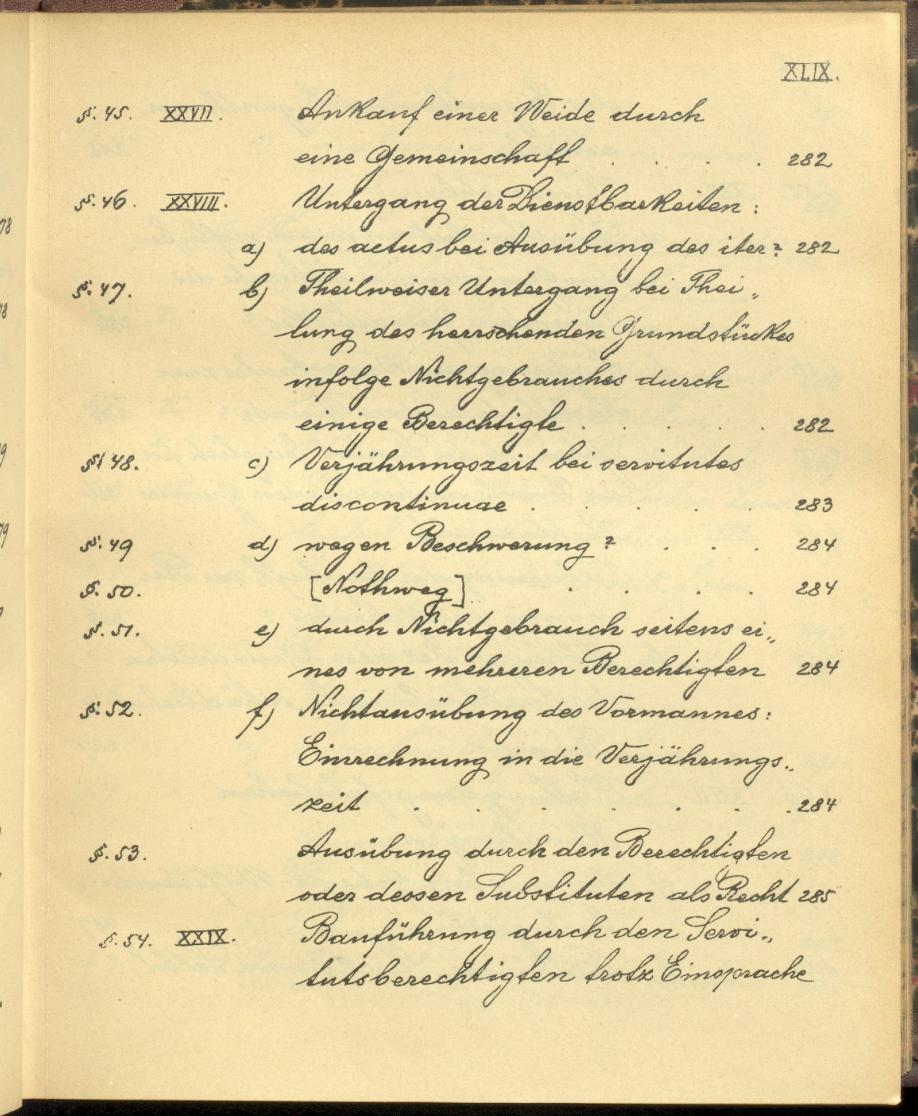 XLIX.
§. 45. XXVII. Ankauf einer Weide durch
eine Gemeinschaft . . . . 282
§. 46. XXVIII. Untergang der Dienstbarkeiten:
a) des actus bei Ausübung des iter? 282
§. 47. b) Theilweiser Untergang bei Thei„
lung des herrschenden Grundstückes
infolge Nichtgebrauches durch
einige Berechtigte . . . . . 282
§. 48. c) Verjährungszeit bei servitutes
discontinuae . . . . . 283
§. 49 d) wegen Beschwerung? . . . 284
§. 50. [Nothweg] . . . . 284
§. 51. e) durch Nichtgebrauch seitens ei„
nes von mehreren Berechtigten 284
§. 52. f) Nichtausübung des Vormannes:
Einrechnung in die Verjährungs„
zeit . . . . . . . 284
§. 53. Ausübung durch den Berechtigten
oder dessen Substituten als Recht 285
§. 54. XXIX. Bauführung durch den Servi„
tutsberechtigten trotz Einsprache